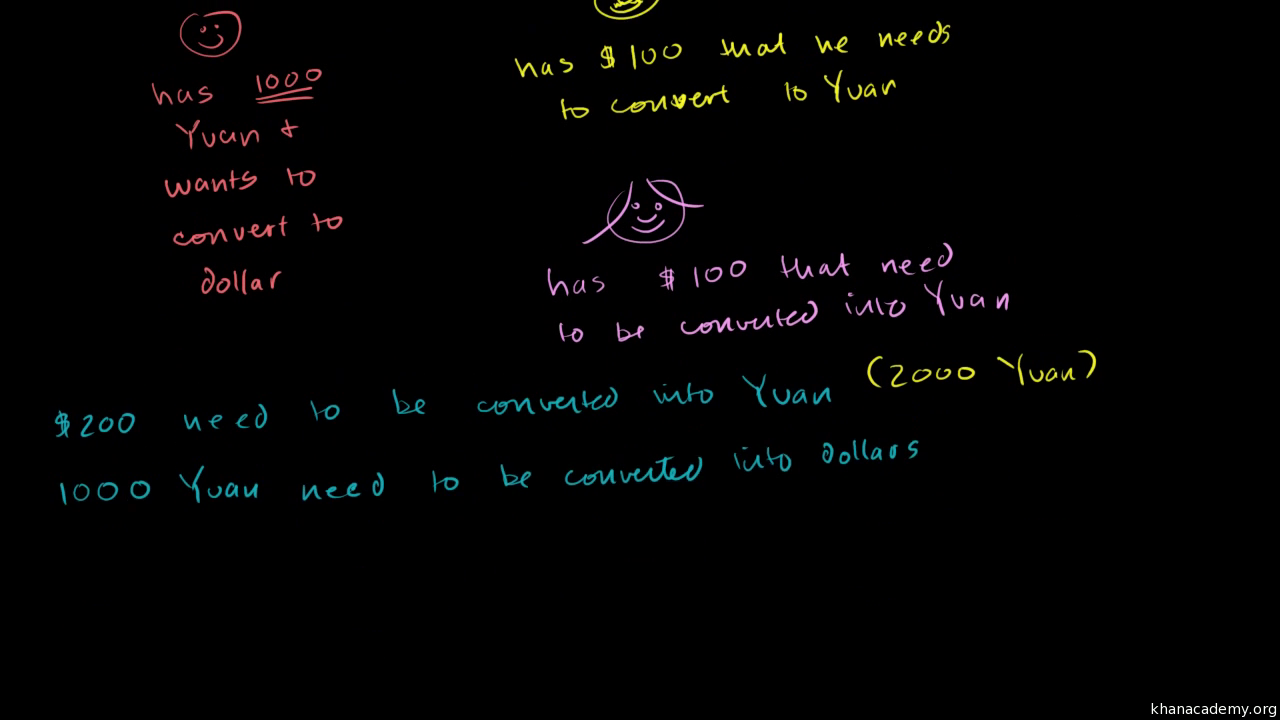 has 1000
Yuan +
wants to
convert to
dollar
has $100 that he needs
to convert to Yuan
has $100 that need
to be converted into Yuan
$200 need to be converted into Yuan (2000 Yuan)
1000 Yuan need to be converted into dollars
khanacademy.org